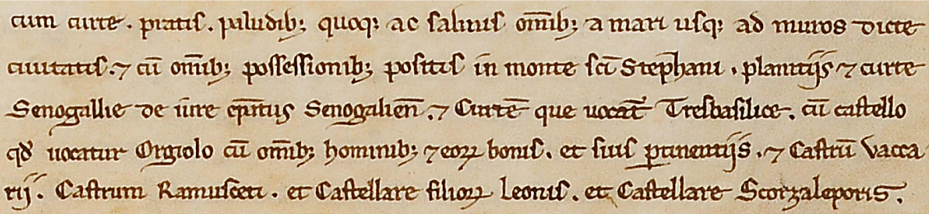 cum curte. pratis. paludib; quoq; ac salinis om̅ib; a mari usq; ad muros dicte
ciuitatis. ⁊ cū om̅ib; possessionib; positis in monte sc̅i Stephani. planitijs ⁊ curte
Senogallie de iure com̅itus Senogalien̅. ⁊ Curte̅ que uocat̅ Tresbasilice. cū castello
qd̅ uocatur Orgiolo cū om̅ib; hominib; ⁊ eoꝝ bonis. et suis ꝑtinentijs. ⁊ Castrū Vacca
rij. Castrum Ramusceti. et Castellare filioꝝ Leonis. et Castellare Scorzaleporis.